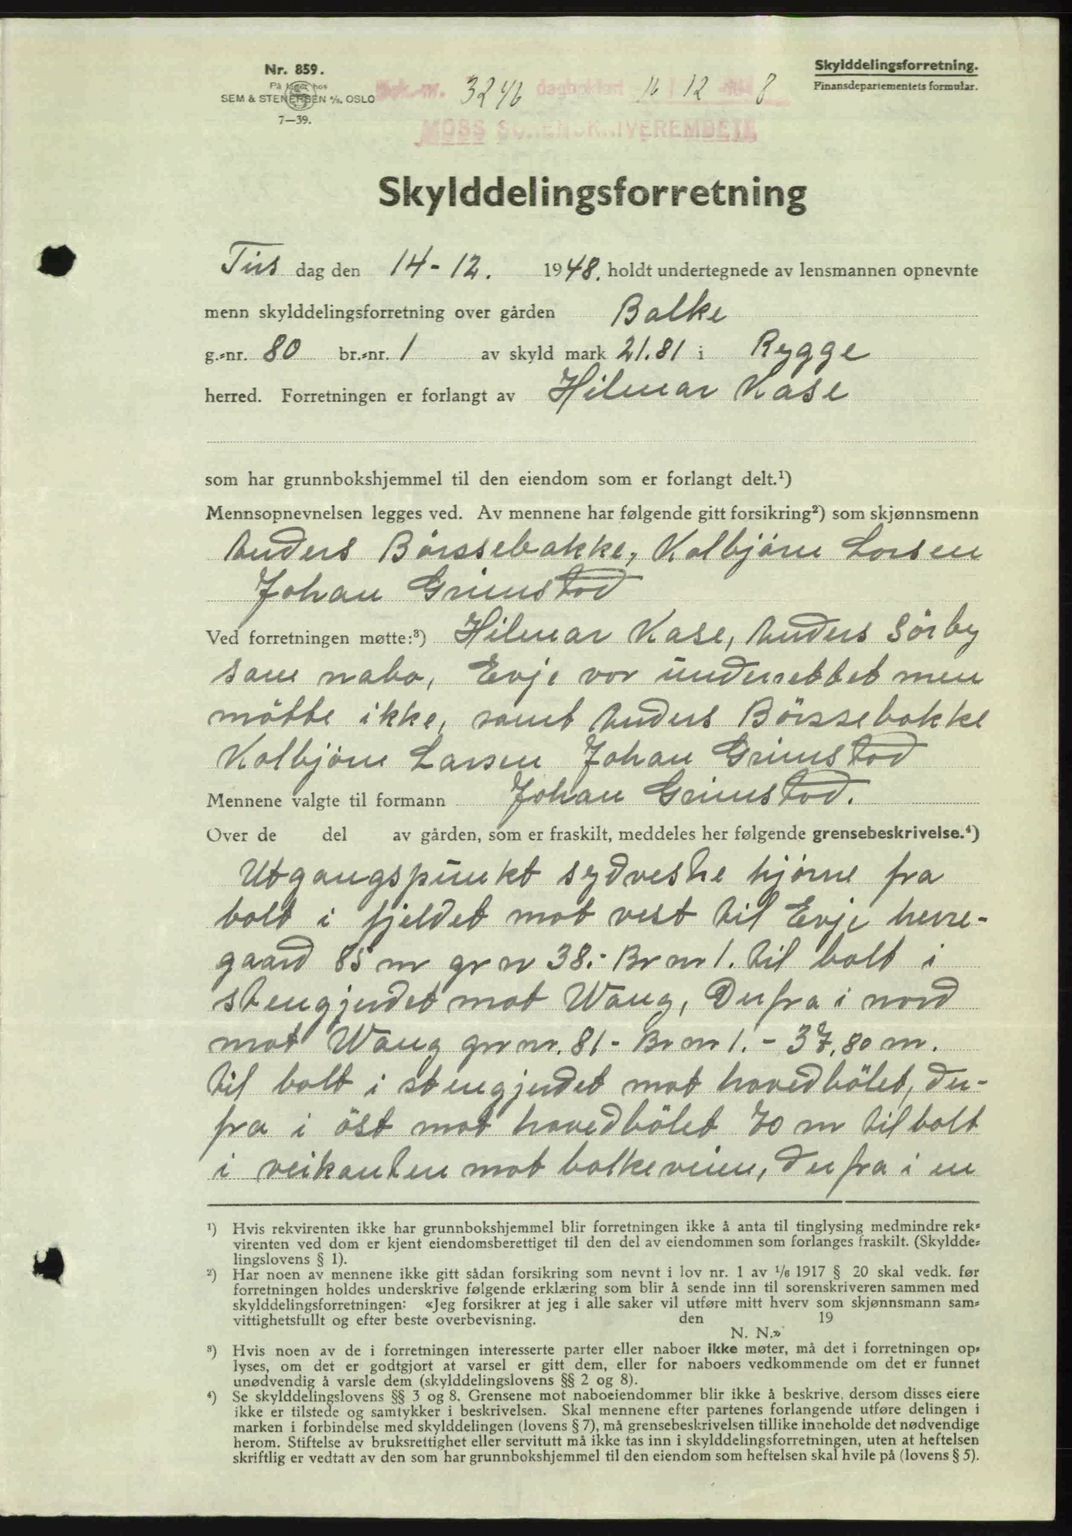 Nr. 859.
På lager hos
SEM & STENERSEN A/S. OSLO
7—39.
Skylddelingsforretning.
Finansdepartementets formular.
Dok.nr. 3246 dagbokført 16/12 1948
MOSS SORENSKRIVEREMBETE
Skylddelingsforretning
Tirs dag den 14-12. 1948. holdt undertegnede av lensmannen opnevnte
menn skylddelingsforretning over gården Balke
g.-nr. 80 br.-nr. 1 av skyld mark 21.81 i Rygge
herred. Forretningen er forlangt av Hilmar Kase
som har grunnbokshjemmel til den eiendom som er forlangt delt.¹)
Mennsopnevnelsen legges ved. Av mennene har følgende gitt forsikring²) som skjønnsmenn
Anders Börssebakke, Kolbjörn Larsen
Johan Grimstad
Ved forretningen møtte:³) Hilmar Kase, Anders Sörby
som nabo, Evje var underrettet men
mötte ikke, samt Anders Börssebakke
Kolbjörn Larsen Johan Grimstad
Mennene valgte til formann Johan Grimstad.
Over de del av gården, som er fraskilt, meddeles her følgende grensebeskrivelse.⁴)
Utgangspunkt sydvestre hjörne fra
bolt i fjeldet mot vest til Evje herre-
gaard 85 m gr nr 38.- Br nr 1. til bolt i
stengjerdet mot Wang, Derfra i nord
mot Wang gr nr. 81 - Br nr 1. - 37,80 m.
til bolt i stengjerdet mot hovedbölet, der-
fra i öst mot hovedbölet 70 m til bolt
i veikanten mot balkeveien, derfra i en
¹) Hvis rekvirenten ikke har grunnbokshjemmel blir forretningen ikke å anta til tinglysing medmindre rek-
virenten ved dom er kjent eiendomsberettiget til den del av eiendommen som forlanges fraskilt. (Skyldde-
lingslovens § 1).
²) Har noen av mennene ikke gitt sådan forsikring som nevnt i lov nr. 1 av 1/6 1917 § 20 skal vedk. før
forretningen holdes underskrive følgende erklæring som blir å sende inn til sorenskriveren sammen med
skylddelingsforretningen: «Jeg forsikrer at jeg i alle saker vil utføre mitt hverv som skjønnsmann sam-
vittighetsfullt og efter beste overbevisning. den 19
N. N.»
³) Hvis noen av de i forretningen interesserte parter eller naboer ikke møter, må det i forretningen op-
lyses, om det er godtgjort at varsel er gitt dem, eller for naboers vedkommende om det er funnet
unødvendig å varsle dem (skylddelingslovens §§ 2 og 8).
⁴) Se skylddelingslovens §§ 3 og 8. Grensene mot naboeiendommer blir ikke å beskrive, dersom disses eiere
ikke er tilstede og samtykker i beskrivelsen. Skal mennene efter partenes forlangende utføre delingen i
marken i forbindelse med skylddelingen (lovens § 7), må grensebeskrivelsen tillike inneholde det nødvendige
herom. Stiftelse av bruksrettighet eller servitutt må ikke tas inn i skylddelingsforretningen, uten at heftelsen
skriftlig er vedtatt av den som har grunnbokshjemmel til den eiendom som heftelsen skal hvile på (lovens § 5).